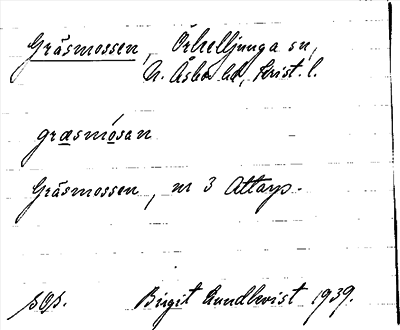 Gräsmossen, Örkelljunga sn,
N. Åsbo hd, Krist. l.
græsmósan
Gräsmossen, nr 3 Attarp.
sgs. Birgit Rundkvist 1939.